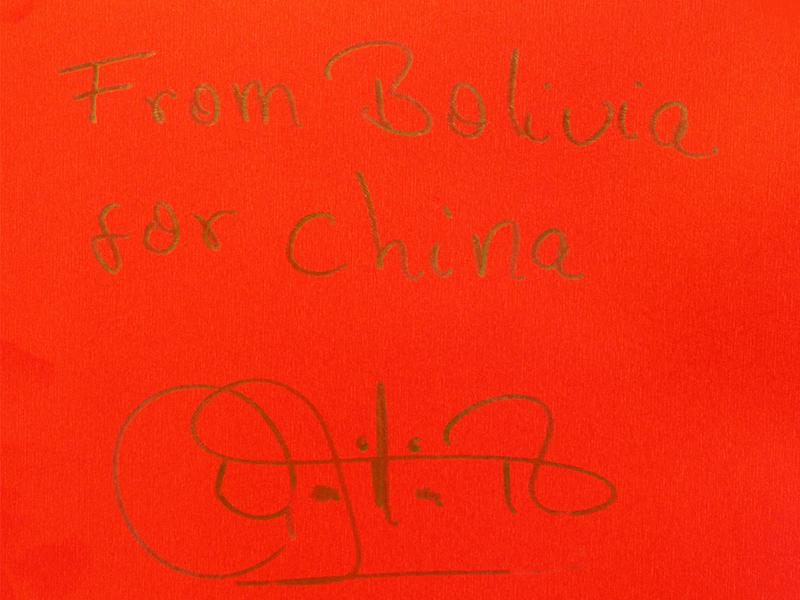 From Bolivia
for china